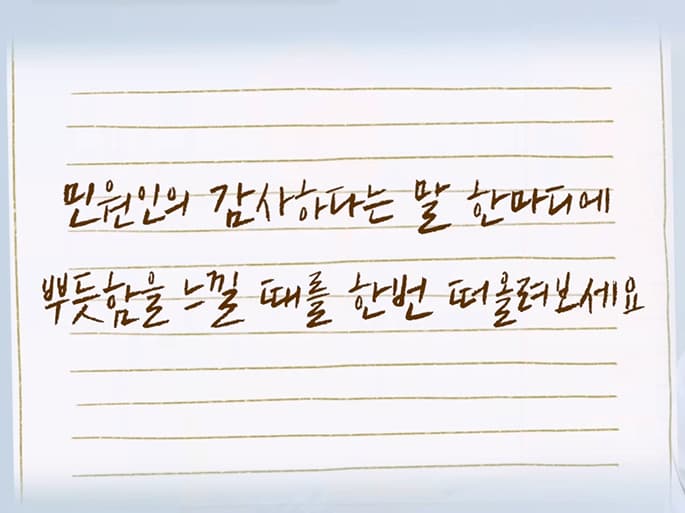 민원인의 감사하다는 말 한마디에
뿌듯함을 느낄 때를 한번 떠올려보세요